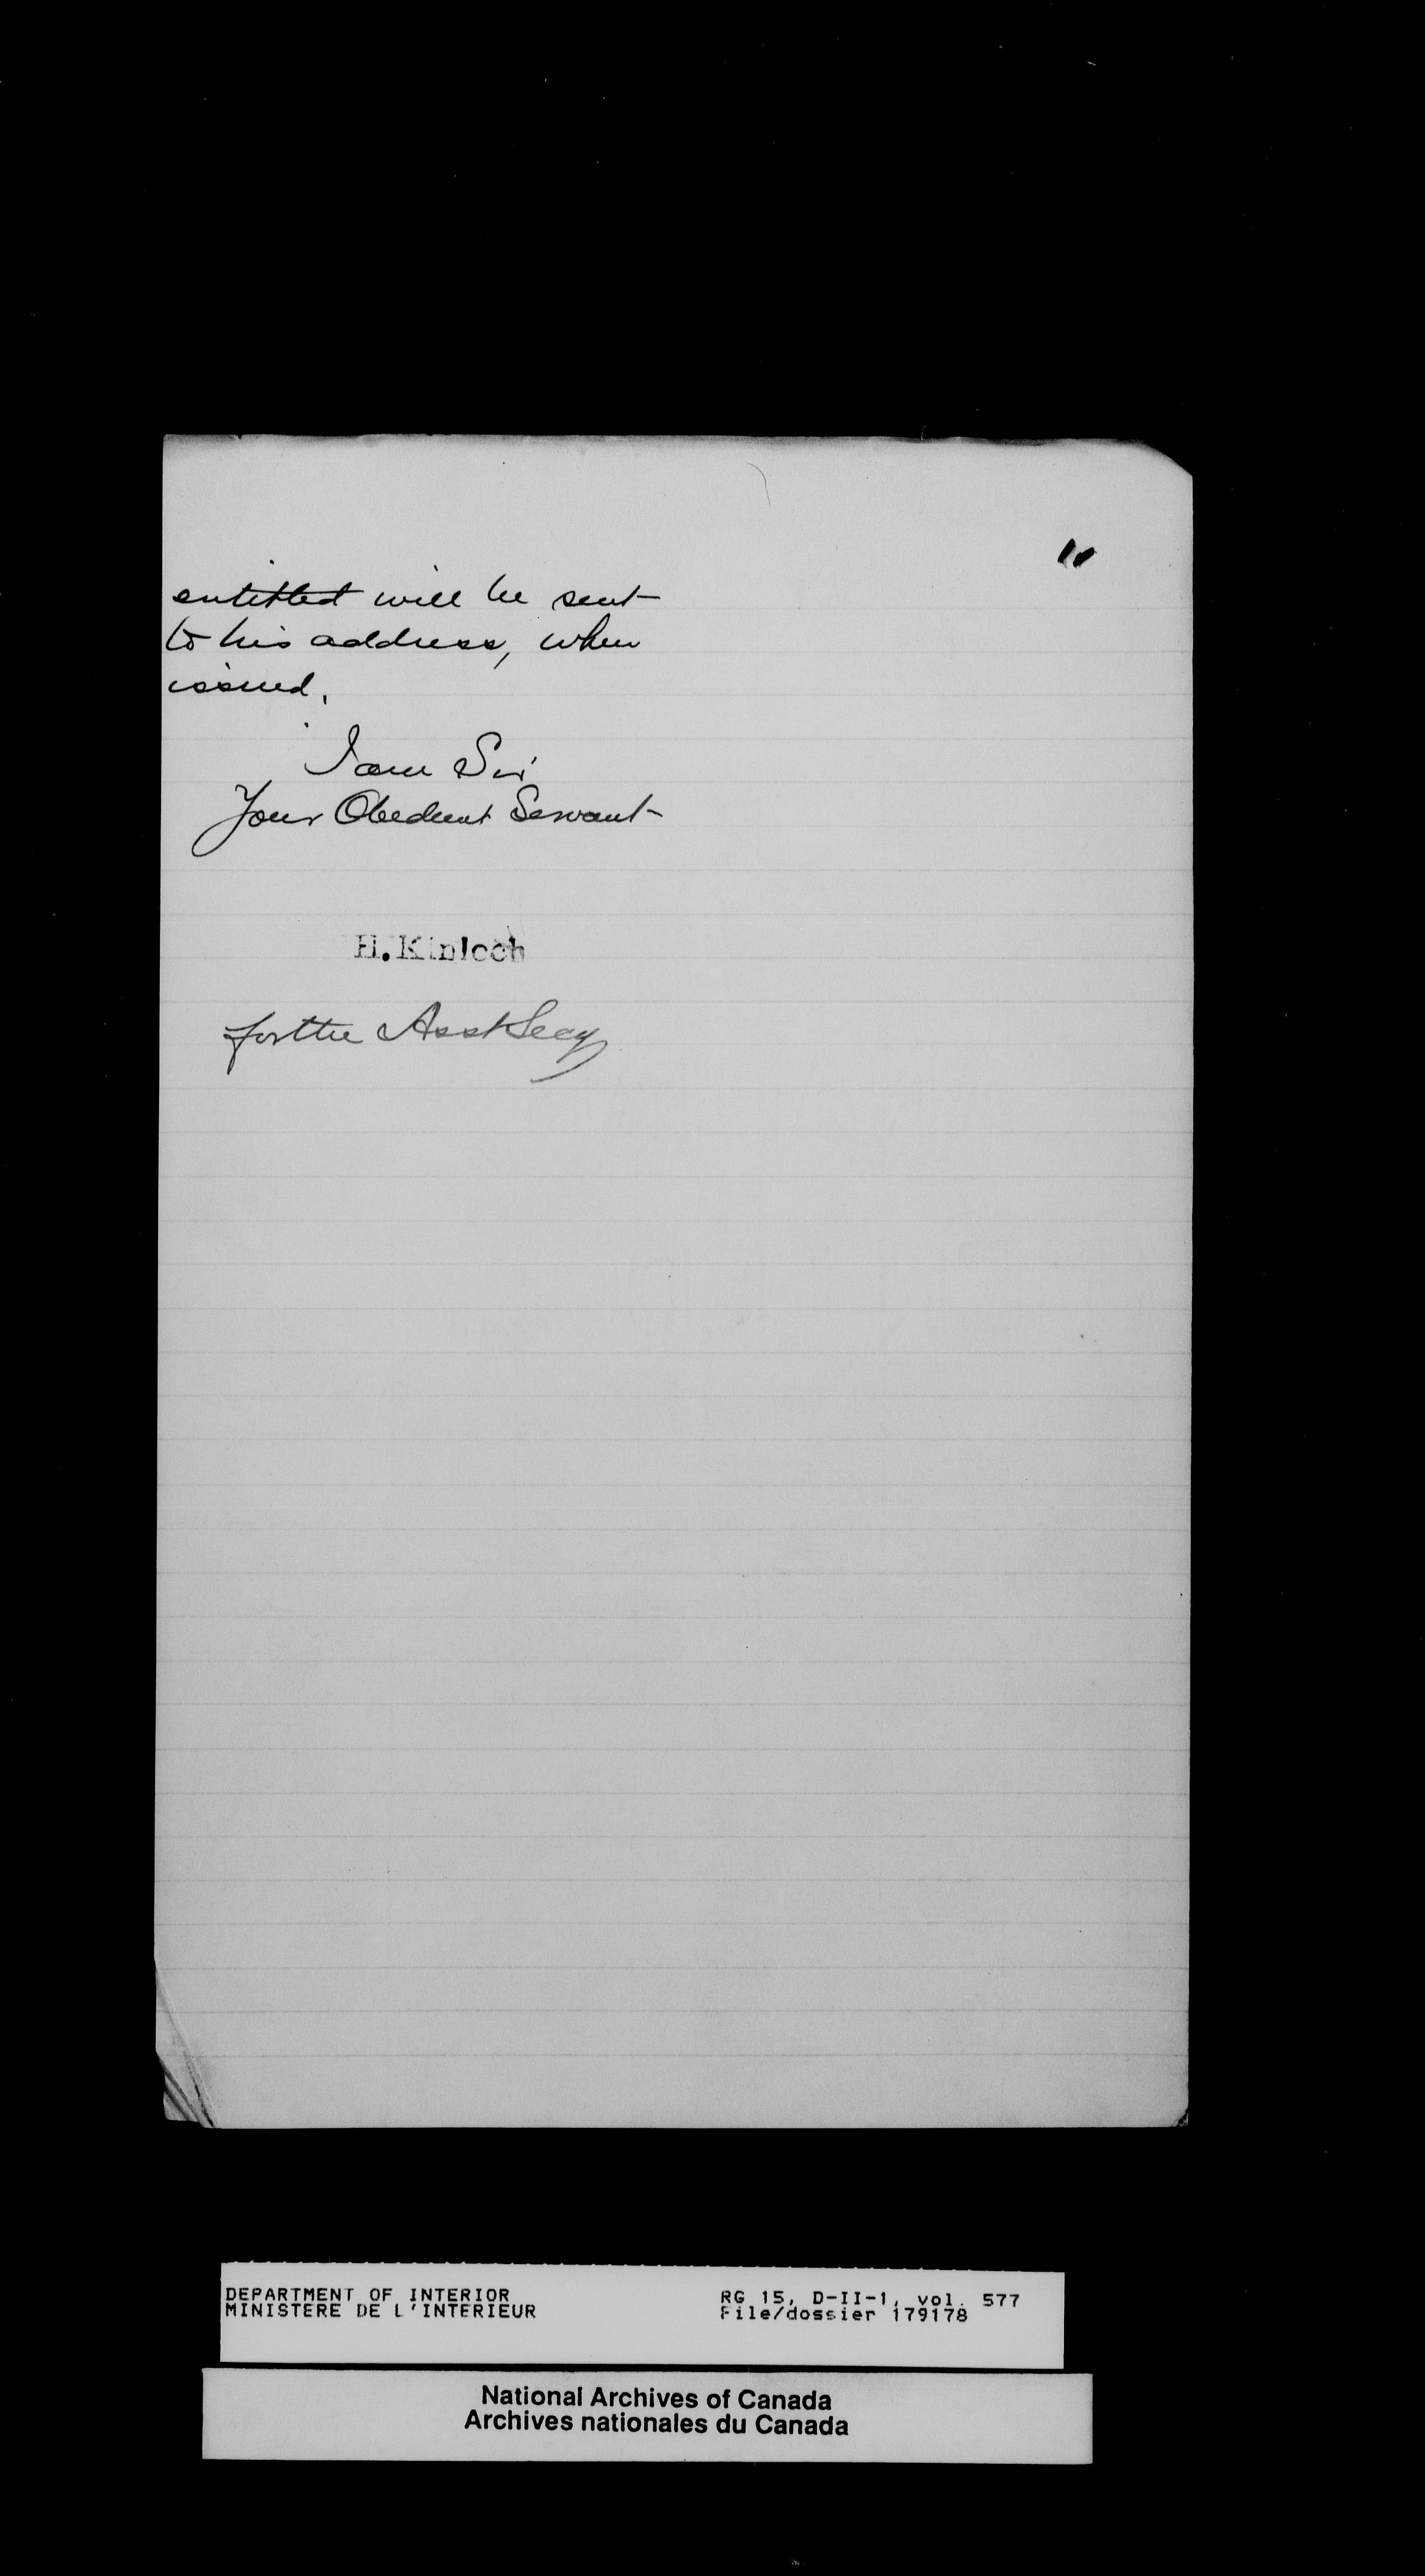 11
entitled will be sent
to his address, when
issued.
I am Sir
Your Obedient Servant
H. Kinloch
for the Asst Secy
DEPARTMENT OF INTERIOR
MINISTERE DE L'INTERIEUR
RG 15, D-II-1, vol. 577
File/dossier 179178
National Archives of Canada
Archives nationales du Canada